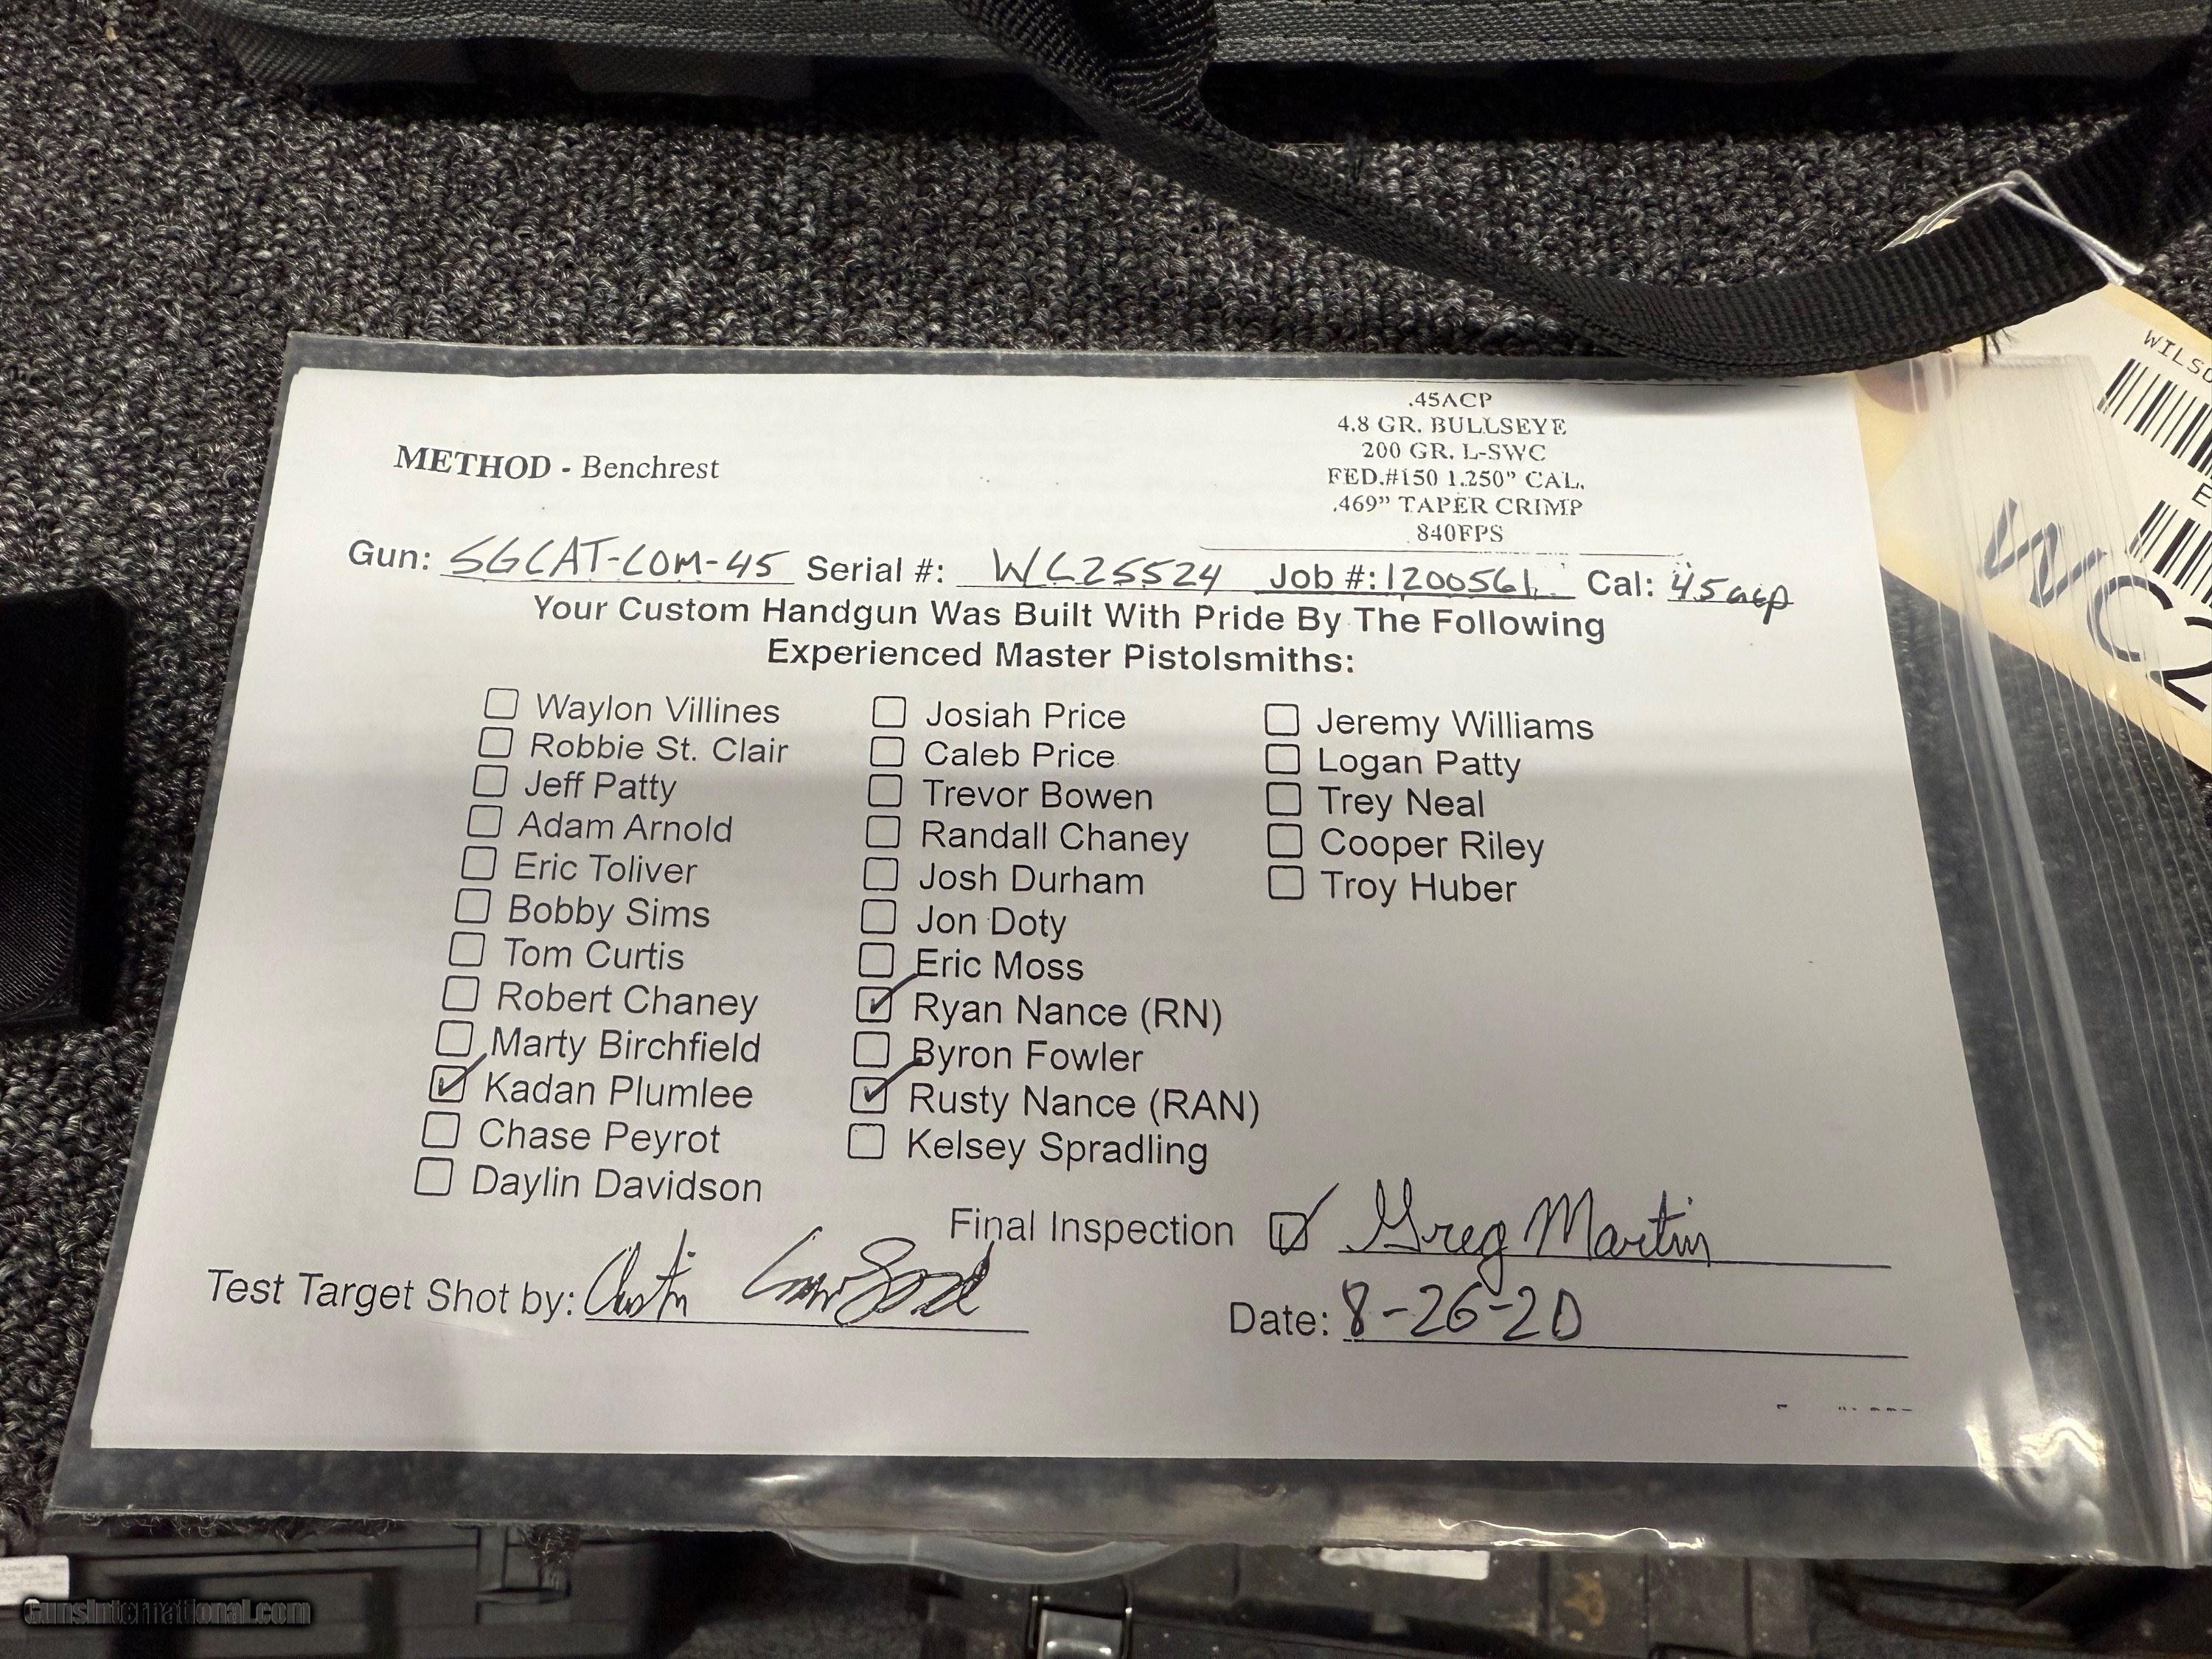 .45ACP
4.8 GR. BULLSEYE
200 GR. L-SWC
FED.#150 1.250" CAL.
.469" TAPER CRIMP
840FPS
METHOD - Benchrest
Gun: SGCAT-COM-45 Serial #: WC25524 Job #: 1200561 Cal: 45acp
Your Custom Handgun Was Built With Pride By The Following
Experienced Master Pistolsmiths:
Waylon Villines
Robbie St. Clair
Jeff Patty
Adam Arnold
Eric Toliver
Bobby Sims
Tom Curtis
Robert Chaney
Marty Birchfield
Kadan Plumlee
Chase Peyrot
Daylin Davidson
Josiah Price
Caleb Price
Trevor Bowen
Randall Chaney
Josh Durham
Jon Doty
Eric Moss
Ryan Nance (RN)
Byron Fowler
Rusty Nance (RAN)
Kelsey Spradling
Jeremy Williams
Logan Patty
Trey Neal
Cooper Riley
Troy Huber
Final Inspection Greg Martin
Test Target Shot by: Austin
Date: 8-26-20
GunsInternational.com